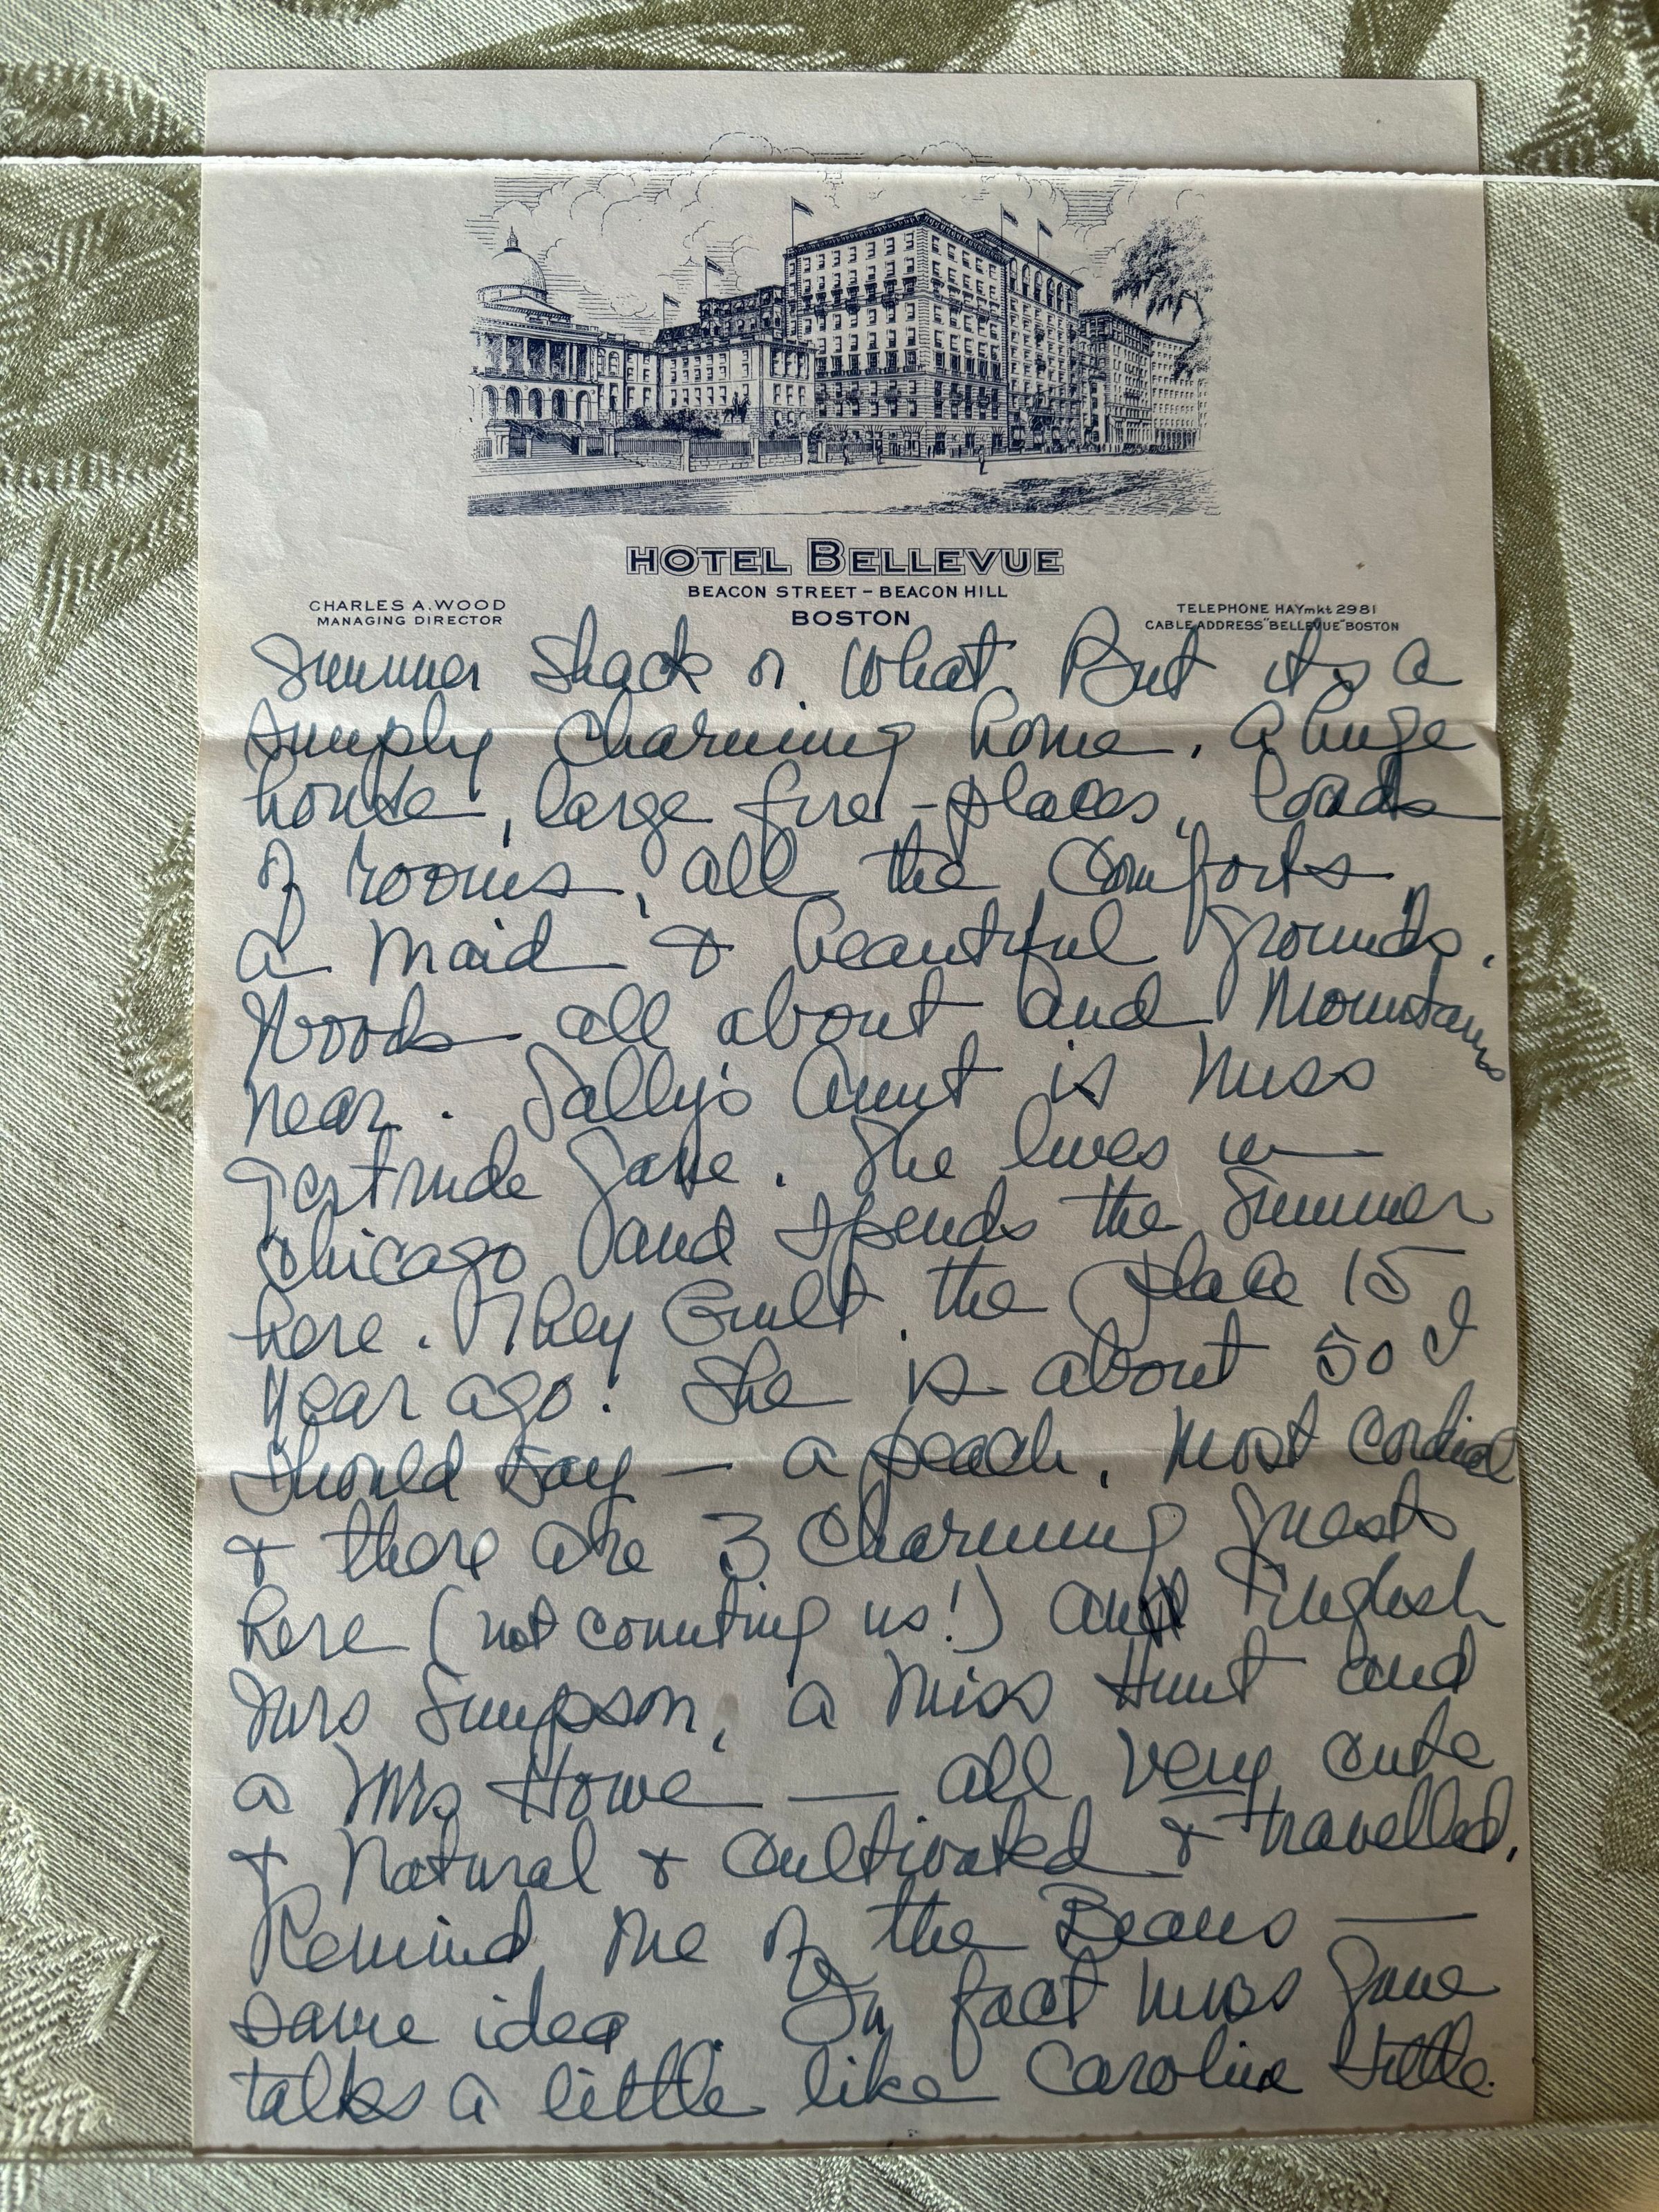 HOTEL BELLEVUE
BEACON STREET – BEACON HILL
BOSTON
CHARLES A. WOOD
MANAGING DIRECTOR
TELEPHONE HAYmkt 2981
CABLE ADDRESS "BELLEVUE" BOSTON
Summer Shack or what. But its a
simply charming home. A huge
house, large fire-places, loads
of rooms, all the comforts,
a maid & beautiful grounds.
Woods all about and Mountains
near. Sally's Aunt is Miss
Gertrude. She lives in
Chicago and spends the Summer
here. They built the place 15
year ago. She is about 50 I
should say — a peach. Most cordial
& there are 3 charming guests
here (not counting us!) an English
Mrs Simpson, a Miss Hunt and
a Mrs Howe — all very cute
& natural & cultivated & travelled.
Remind me of the Beans —
same idea In fact Miss
talks a little like Caroline